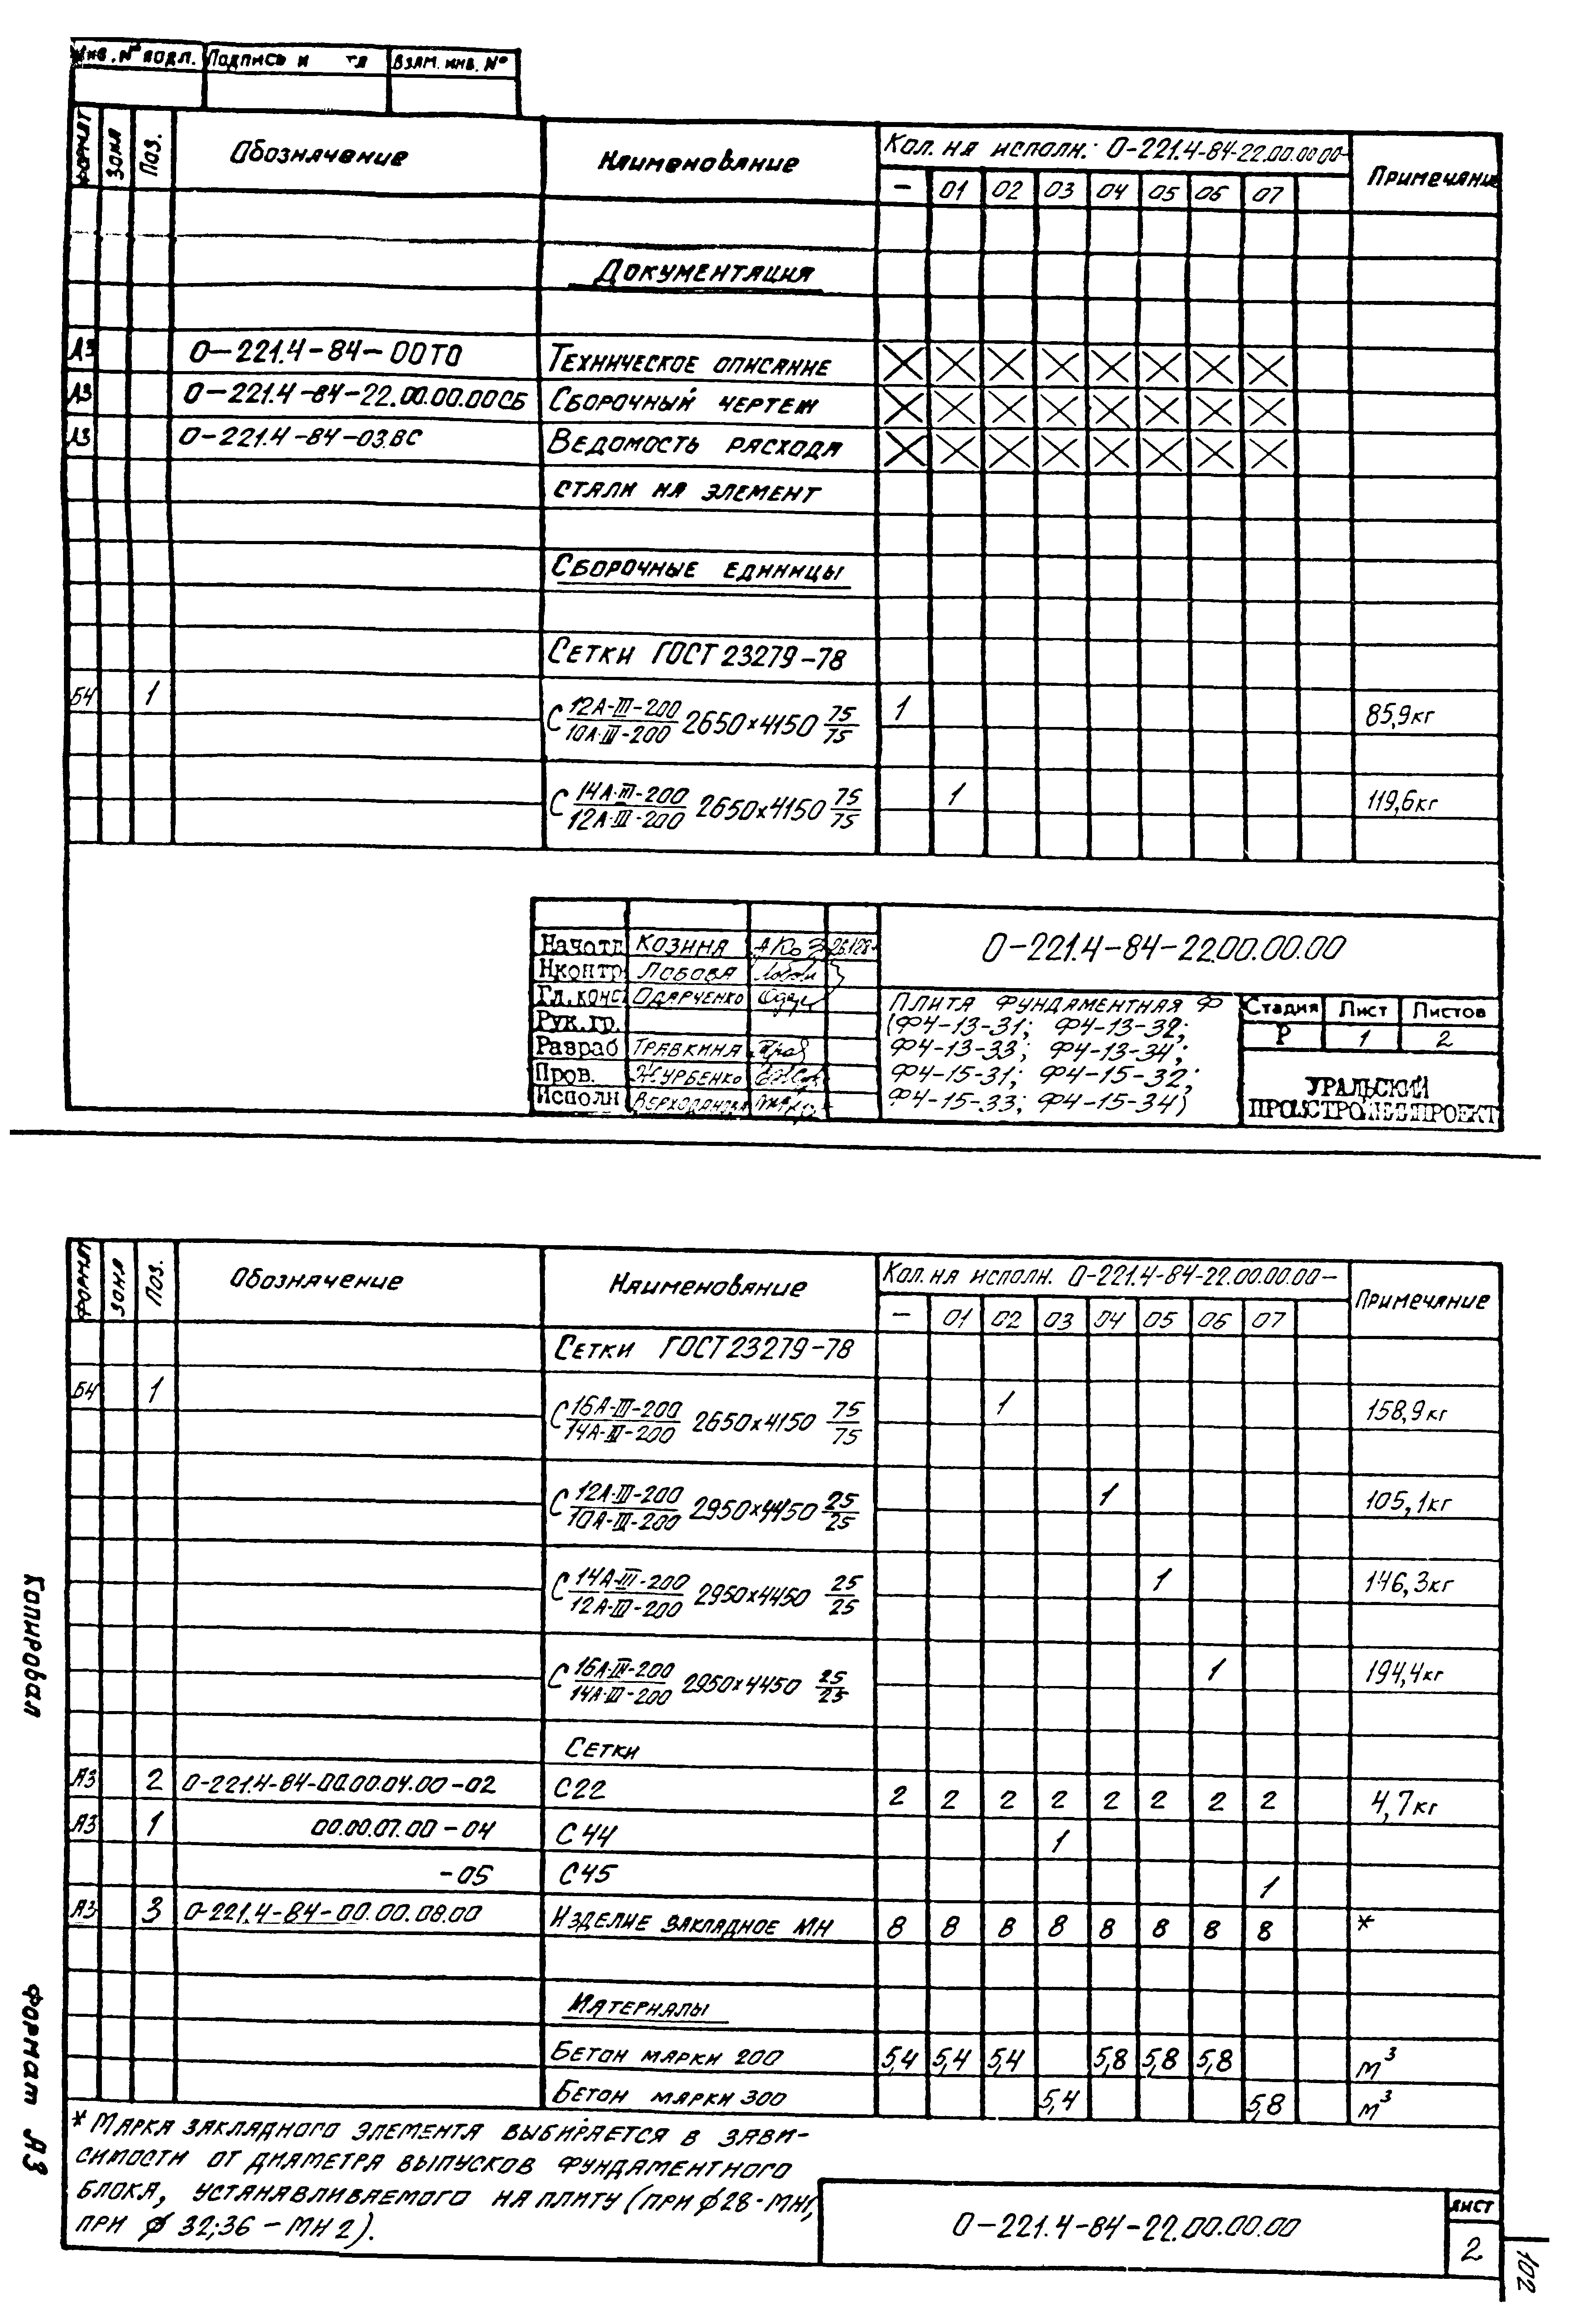 Инв. № подл. Подпись и та Взам. инв. №
Формат Зона Поз. Обозначение Наименование Кол. на исполн.: 0-221.4-84-22.00.00.00- Примечание
– 01 02 03 04 05 06 07
Документация
А3 0-221.4-84-00ТО Техническое описание X X X X X X X X
А3 0-221.4-84-22.00.00.00СБ Сборочный чертеж X X X X X X X X
А3 0-221.4-84-03.ВС Ведомость расхода X X X X X X X X
стали на элемент
Сборочные единицы
Сетки ГОСТ 23279-78
Б4 1 С 12А-III-200/10А-III-200 2650×4150 75/75 1 85,9кг
С 14А-III-200/12А-III-200 2650×4150 75/75 1 119,6кг
0-221.4-84-22.00.00.00
Нач.отд Козина
Н.контр Лобова
Гл.конс Одярченко
Рук.гр.
Разраб Травкина
Пров. Журбенко
Исполн
Плита фундаментная Ф
(Ф4-13-31; Ф4-13-32;
Ф4-13-33; Ф4-13-34;
Ф4-15-31; Ф4-15-32;
Ф4-15-33; Ф4-15-34)
Стадия Лист Листов
Р 1 2
УРАЛЬСКИЙ
ПРОМСТРОЙНИИПРОЕКТ
Формат Зона Поз. Обозначение Наименование Кол. на исполн. 0-221.4-84-22.00.00.00– Примечание
– 01 02 03 04 05 06 07
Сетки ГОСТ 23279-78
Б4 1 С 16А-III-200/14А-III-200 2650×4150 75/75 1 158,9кг
С 12А-III-200/10А-III-200 2950×4450 25/25 1 105,1кг
С 14А-III-200/12А-III-200 2950×4450 25/25 1 146,3кг
С 16А-III-200/14А-III-200 2950×4450 25/25 1 194,4кг
Сетки
А3 2 0-221.4-84-00.00.04.00-02 С22 2 2 2 2 2 2 2 2 4,7кг
А3 1 00.00.07.00-04 С44 1
-05 С45 1
А3 3 0-221.4-84-00.00.08.00 Изделие закладное МН 8 8 8 8 8 8 8 8 *
Материалы
Бетон марки 200 5,4 5,4 5,4 5,8 5,8 5,8 м³
Бетон марки 300 5,4 5,8 м³
* Марка закладного элемента выбирается в зави-
симости от диаметра выпусков фундаментного
блока, устанавливаемого на плиту (при ⌀28-МН1,
при ⌀ 32;36 – МН2).
0-221.4-84-22.00.00.00
Лист
2
102
Копировал
Формат А3